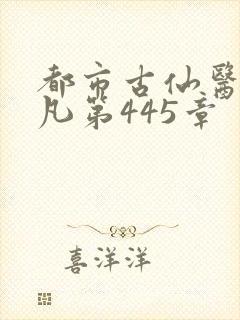 都市古仙醫
凡第445章
喜洋洋